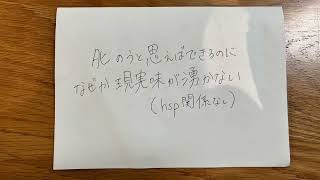 ACのうと思えばできるのに
なぜか現実味が湧かない
(hsp関係なし)